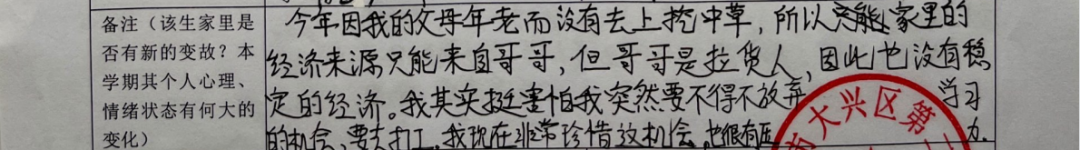 备注（该生家里是
否有新的变故？本
学期其个人心理、
情绪状态有何大的
变化）
今年因我的父母年老而没有去上挖虫草，所以只能家里的
经济来源只能来自哥哥，但哥哥是拉货人，因此也没有稳
定的经济。我其实挺害怕我突然要不得不放弃 学习
的机会，要去打工，我现在非常珍惜这机会，也很有压 力.
大兴区第